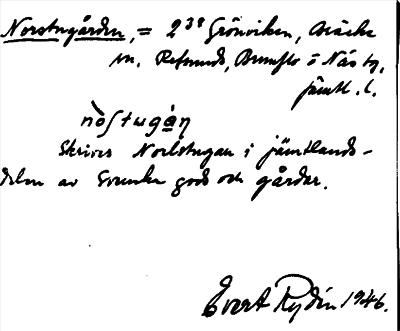 Norstugården, = 2³⁹ Grönviken, Bräcke
sn. Refsunds, Brunflo o Näs tg,
jämtl. l.
nòʃtugàn
Skrives Norlstugan i jämtlands-
delen av Svenska gods och gårdar.
Evert Rydin 1946.